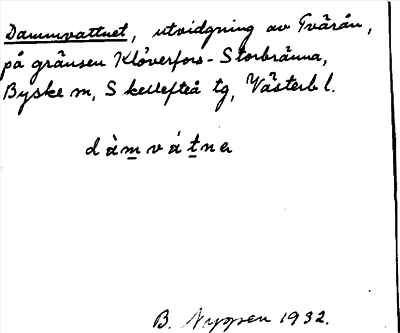 Dammvattnet, utvidgning av Tvärån,
på gränsen Klöverfors - Storbränna,
Byske m, Skellefteå tg, Västerb l.
dàm̲vát̲nə
B. Nyppen 1932.